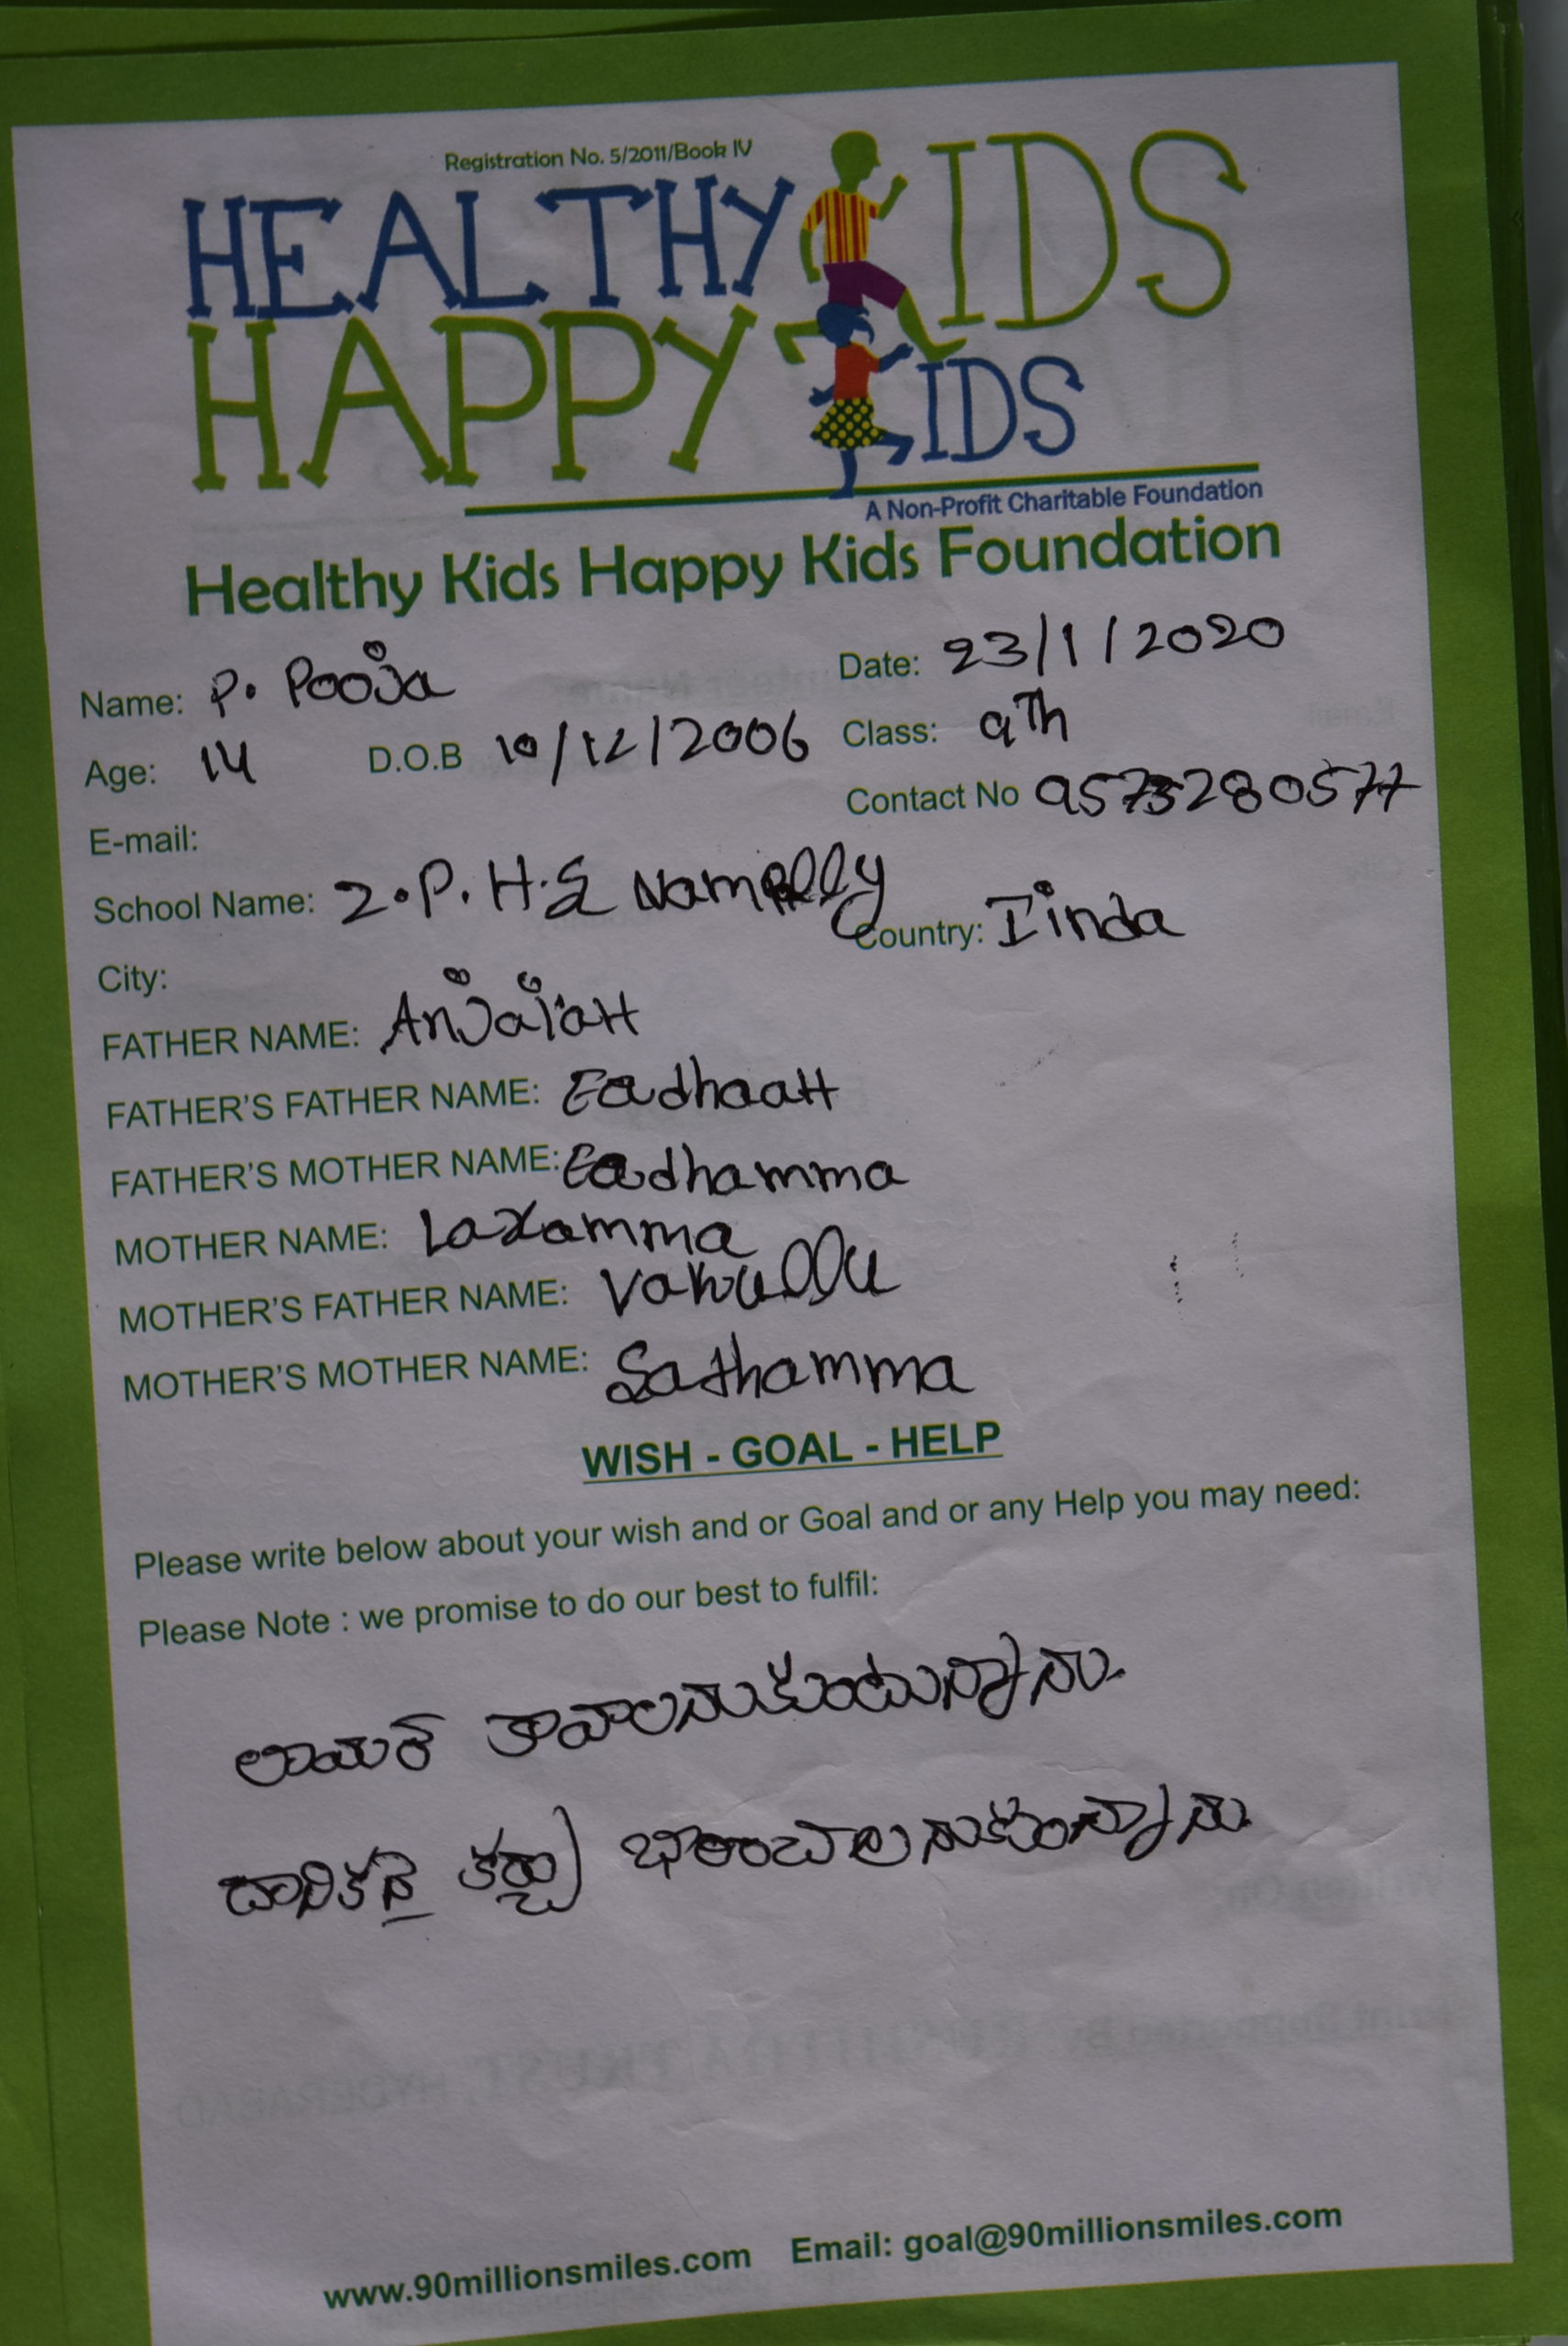 Registration No. 5/2011/Book IV
HEALTHY KIDS
HAPPY KIDS
A Non-Profit Charitable Foundation
Healthy Kids Happy Kids Foundation
Name: P. Pooja Date: 23/1/2020
Age: 14 D.O.B 10/12/2006 Class: 9Th
E-mail: Contact No 9573280577
School Name: Z.P.H.S Nampally
City: Country: Iinda
FATHER NAME: Anjaiah
FATHER'S FATHER NAME: Eadhaah
FATHER'S MOTHER NAME: Eadhamma
MOTHER NAME: Laxamma
MOTHER'S FATHER NAME: Vakullu
MOTHER'S MOTHER NAME: Sathamma
WISH - GOAL - HELP
Please write below about your wish and or Goal and or any Help you may need:
Please Note : we promise to do our best to fulfil:
లాయర్ కావాలనుకుంటున్నాను.
దానికనై కర్చు భరించాలనుకుంన్నాను.
www.90millionsmiles.com Email: goal@90millionsmiles.com